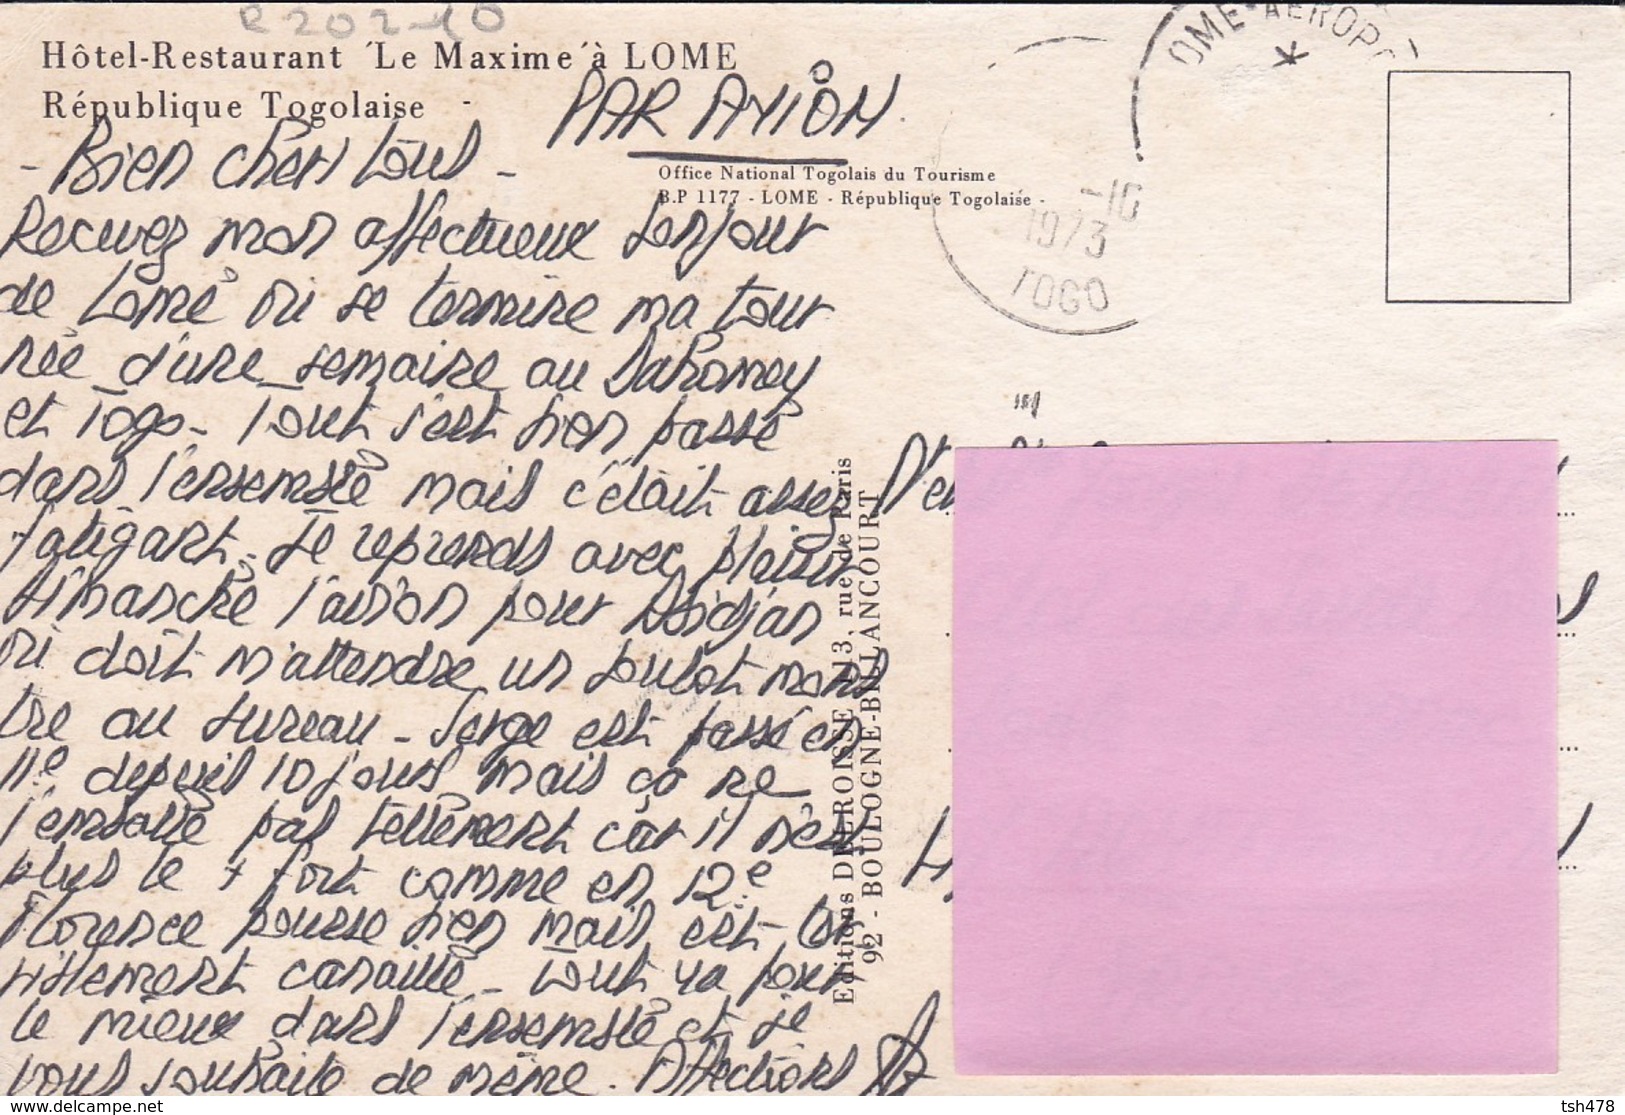 R202-10
Hôtel-Restaurant ´Le Maxime´à LOME
République Togolaise -
PAR AVION.
Office National Togolais du Tourisme
B.P 1177 - LOME - République Togolaise -
OME-AEROPO
*
-10
1973
TOGO
- Bien chers tous -
Recevez mon affectueux bonjour
de Lomé où se termine ma tour
née d'une semaine au Dahomey
et Togo - Tout s'est bien passé
dans l'ensemble mais c'était assez
fatigant. Je reprends avec plaisir
dimanche l'avion pour Abidjan
où doit m'attendre un boulot mons
tre au bureau - Serge est passé en
11e depuis 10 jours mais ça ne
l'emballe pas tellement car il n'est
plus le + fort comme en 12e.
Florence pousse bien mais est ter
riblement canaille - Tout va pour
le mieux dans l'ensemble et je
vous souhaite de même. Affections
Editions DELROISSE 113, rue de Paris
92 - BOULOGNE-BILLANCOURT
tsh478